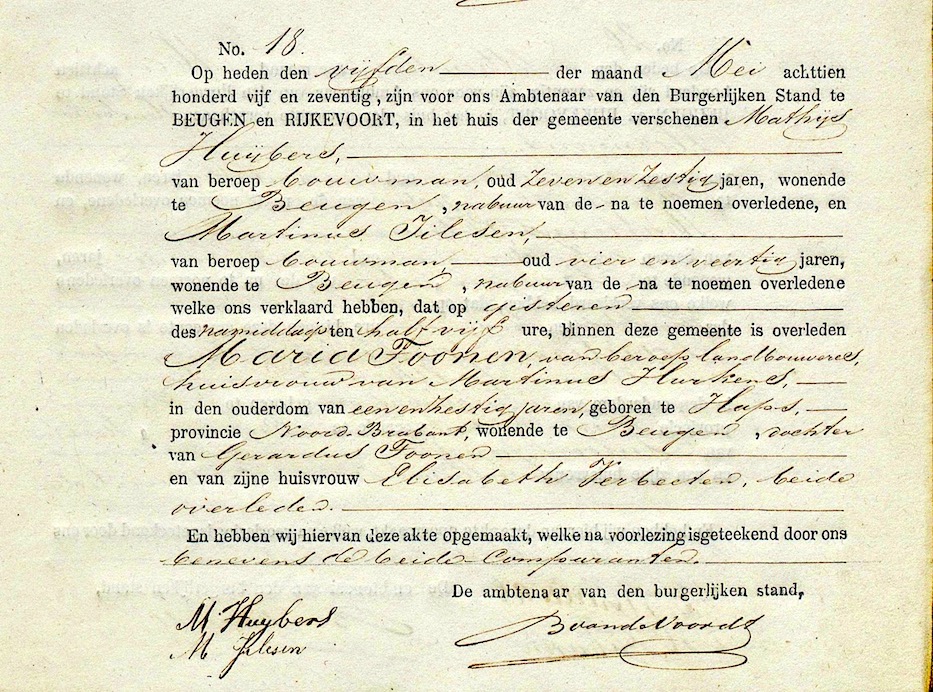 No. 18.
Op heden den vijfden der maand Mei achttien
honderd vijf en zeventig, zijn voor ons Ambtenaar van den Burgerlijken Stand te
BEUGEN en RIJKEVOORT, in het huis der gemeente verschenen Mathijs
Huijbers,
van beroep bouwman, oud zeven en zestig jaren, wonende
te Beugen, nabuur van de na te noemen overledene, en
Martinus Tilesen,
van beroep bouwman, oud vier en veertig jaren,
wonende te Beugen, nabuur van de na te noemen overledene
welke ons verklaard hebben, dat op gisteren
des namiddags ten half vijf ure, binnen deze gemeente is overleden
Maria Toonen, van beroep landbouweres,
huisvrouw van Martinus Hurkens,
in den ouderdom van een en zestig jaren, geboren te Haps,
provincie Noord-Brabant, wonende te Beugen, dochter
van Gerardus Toonen
en van zijne huisvrouw Elisabeth Verbeeten, beide
overleden.
En hebben wij hiervan deze akte opgemaakt, welke na voorlezing is geteekend door ons
benevens de beide Comparanten.
De ambtenaar van den burgerlijken stand,
M. Huybers
M